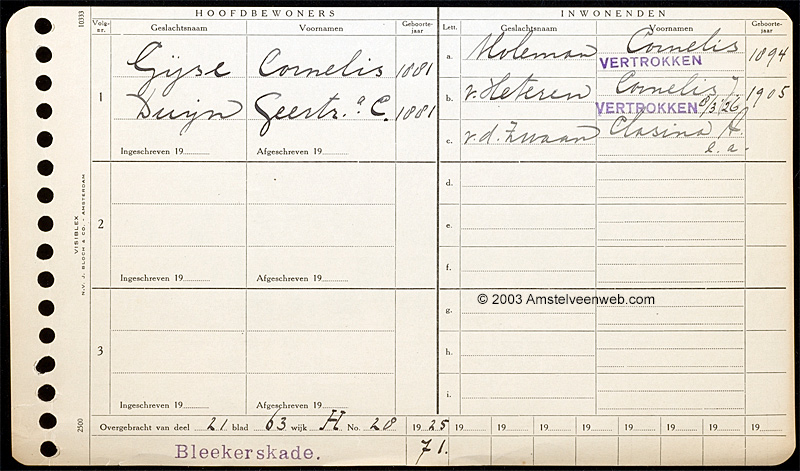 HOOFDBEWONERS
Volg-nr. Geslachtsnaam Voornamen Geboorte-jaar
1 Gijse Cornelis 1881
Duijn Geertr.ª C. 1881
Ingeschreven 19 Afgeschreven 19
2
Ingeschreven 19 Afgeschreven 19
3
Ingeschreven 19 Afgeschreven 19
INWONENDEN
Lett. Geslachtsnaam Voornamen Geboorte-jaar
a. Moleman Cornelis 1894
VERTROKKEN
b. v. Heteren Cornelis J. 1905
VERTROKKEN 5/3 '26
c. v.d. Zwaan Clasina A.
e. a.
d.
e.
f.
© 2003 Amstelveenweb.com
g.
h.
i.
Overgebracht van deel 21 blad 63 wijk H No. 28 1925 19 19 19 19 19 19 19
Bleekerskade. 71.
10333
VISIBLEX
N.V. J. BLOCH & CO. - AMSTERDAM
2500